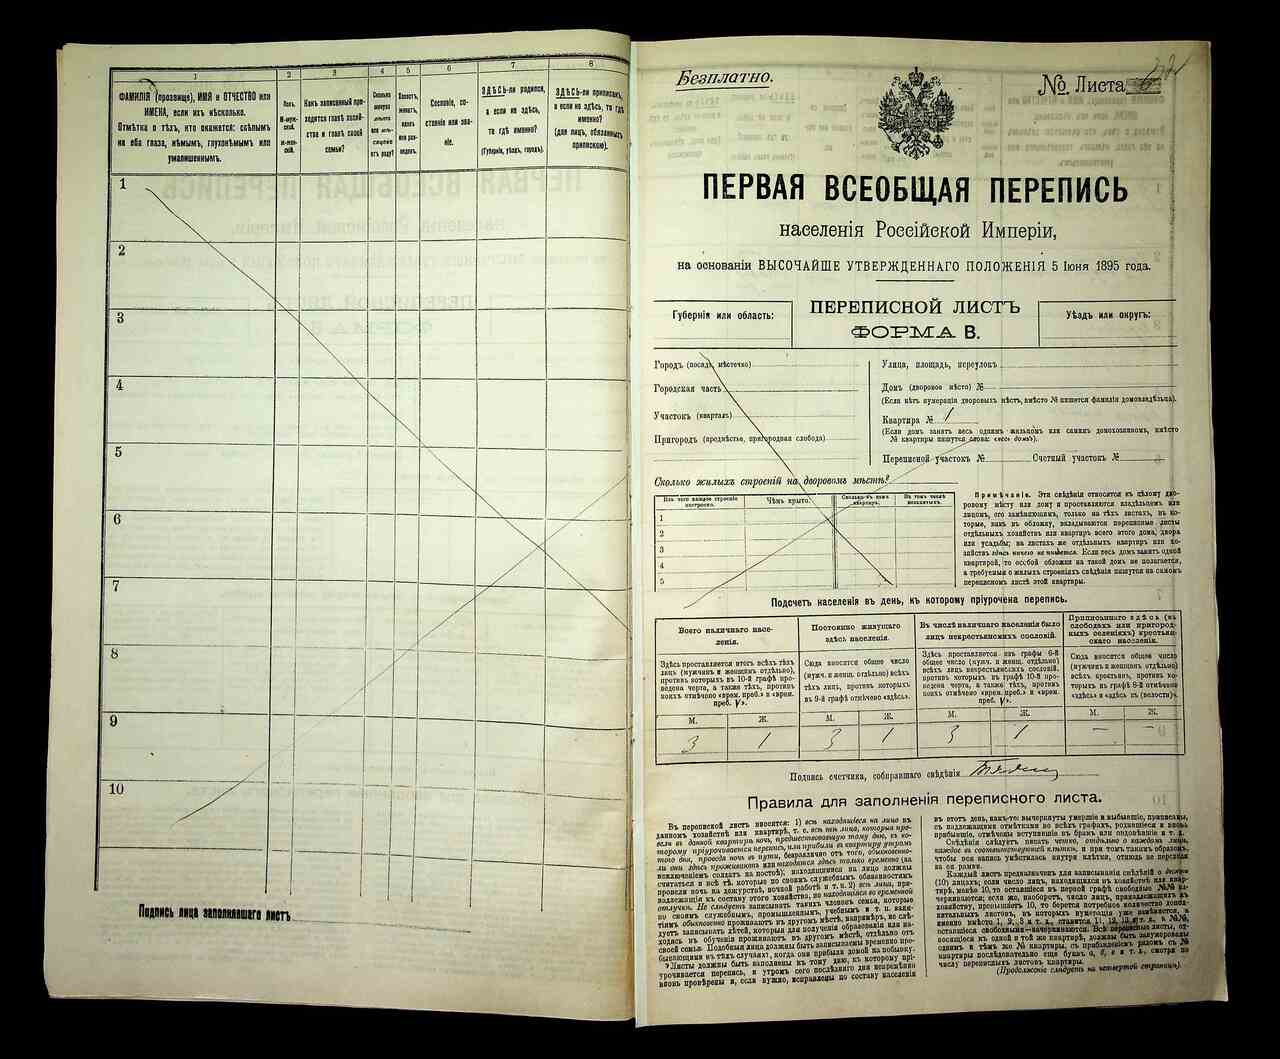 1
2
3
4
5
6
7
8
ФАМИЛІЯ (прозвище), ИМЯ и ОТЧЕСТВО или
ИМЕНА, если ихъ нѣсколько.
Отмѣтка о тѣхъ, кто окажется: слѣпымъ
на оба глаза, нѣмымъ, глухонѣмымъ или
умалишеннымъ.
Полъ.
Какъ записанный при-
ходится главѣ хозяй-
ства и главѣ своей
семьи?
Сколько
Сословіе, со-
стояніе или зва-
ніе.
ЗДѢСЬ-ли родился,
а если не здѣсь,
то гдѣ именно?
(Губернія, уѣздъ, городъ).
ЗДѢСЬ-ли приписанъ,
а если не здѣсь, то гдѣ
именно?
(для лицъ, обязанныхъ
припискою).
1
2
3
4
5
6
7
8
9
10
Подпись лица заполнявшаго листъ
Безплатно.
№ Листа
ПЕРВАЯ ВСЕОБЩАЯ ПЕРЕПИСЬ
населенія Россійской Имперіи,
на основаніи ВЫСОЧАЙШЕ УТВЕРЖДЕННАГО ПОЛОЖЕНІЯ 5 Іюня 1895 года.
Губернія или область:
ПЕРЕПИСНОЙ ЛИСТЪ
ФОРМА В.
Уѣздъ или округъ:
Городъ (посадъ, мѣстечко)
Городская часть
Участокъ (кварталъ)
Пригородъ (предмѣстье, пригородная слобода)
Улица, площадь, переулокъ
Домъ (дворовое мѣсто) №
(Если нѣтъ нумераціи дворовыхъ мѣстъ, вмѣсто № пишется фамилія домовладѣльца).
Квартира № 1
(Если домъ занятъ весь однимъ жильцомъ или самимъ домохозяиномъ, вмѣсто
№ квартиры пишутся слова: «весь домъ»).
Переписной участокъ № Счетный участокъ №
Сколько жилыхъ строеній на дворовомъ мѣстѣ?
Изъ чего каждое строеніе
построено.
Чѣмъ крыто.
Сколько въ немъ
квартиръ.
Въ томъ числѣ
1
2
3
4
5
Примѣчаніе. Эти свѣдѣнія относятся къ цѣлому дво-
ровому мѣсту или дому и проставляются владѣльцемъ или
лицомъ, его замѣняющимъ, только на тѣхъ листахъ, въ ко-
торые, какъ въ обложку, вкладываются переписные листы
отдѣльныхъ хозяйствъ или квартиръ всего этого дома, двора
или усадьбы; на листахъ же отдѣльныхъ квартиръ или хо-
зяйствъ здѣсь ничего не пишется. Если весь домъ занятъ одной
квартирой, то особой обложки на такой домъ не полагается,
а требуемыя о жилыхъ строеніяхъ свѣдѣнія пишутся на самомъ
переписномъ листѣ этой квартиры.
Подсчетъ населенія въ день, къ которому пріурочена перепись.
Всего наличнаго насе-
ленія.
Постоянно живущаго
здѣсь населенія.
Въ числѣ наличнаго населенія было
лицъ некрестьянскихъ сословій.
Приписаннаго здѣсь (въ
слободахъ или пригород-
ныхъ селеніяхъ) крестьян-
скаго населенія.
Здѣсь проставляется итогъ всѣхъ тѣхъ
лицъ (мужчинъ и женщинъ отдѣльно),
противъ которыхъ въ 10-й графѣ про-
ведена черта, а также тѣхъ, противъ
коихъ отмѣчено «врем. преб.» и «врем.
преб. V».
Сюда вносится общее число
(мужч. и женщ. отдѣльно) всѣхъ
тѣхъ лицъ, противъ которыхъ
въ 9-й графѣ отмѣчено «здѣсь».
Здѣсь проставляется изъ графы 6-й
общее число (мужч. и женщ. отдѣльно)
всѣхъ лицъ некрестьянскихъ сословій,
противъ которыхъ въ графѣ 10-й про-
ведена черта, а также тѣхъ, противъ
коихъ отмѣчено «врем. преб.» и «врем.
преб. V».
Сюда вносится общее число
(мужчинъ и женщинъ отдѣльно)
всѣхъ крестьянъ, противъ ко-
торыхъ въ графѣ 8-й отмѣчено
«здѣсь» и «здѣсь къ (волости)».
М. Ж. М. Ж. М. Ж. М. Ж.
3 1 3 1 3 1 — —
Подпись счетчика, собиравшаго свѣдѣнія
Правила для заполненія переписного листа.
Въ переписной листъ вносятся: 1) всѣ находящіеся на лицо въ
данномъ хозяйствѣ или квартирѣ, т. е. всѣ тѣ лица, которыя про-
вели въ данной квартирѣ ночь, предшествовавшую тому дню, къ ко-
торому пріурочивается перепись, или прибыли въ квартиру утромъ
того дня, проведя ночь въ пути, безразлично отъ того, обыкновенно-
ли они здѣсь проживаютъ или находятся здѣсь только временно (за
исключеніемъ солдатъ на постоѣ); находящимися на лицо должно
считаться и всѣ тѣ, которые по своимъ служебнымъ обязанностямъ
находились въ ночь на дежурствѣ, ночной работѣ и т. п. 2) всѣ лица, при-
надлежащія къ составу этого хозяйства, но находящіяся во временной
отлучкѣ. Не слѣдуетъ записывать такихъ членовъ семьи, которые
по своимъ служебнымъ, промышленнымъ, учебнымъ и т. п. заня-
тіямъ обыкновенно проживаютъ въ другомъ мѣстѣ, напримѣръ, не слѣ-
дуетъ записывать дѣтей, которыя для полученія образованія или на-
ходясь въ обученіи проживаютъ въ другомъ мѣстѣ, отдѣльно отъ
своей семьи. Подобныя лица должны быть записываемы временно пре-
бывающими въ тѣхъ случаяхъ, когда они прибыли домой на побывку.
Листы должны быть заполнены къ тому дню, къ которому прі-
урочивается перепись, и утромъ сего послѣдняго дня непремѣнно
вновь провѣрены и, если нужно, исправлены по составу населенія
въ этотъ день, какъ-то: вычеркнуты умершіе и выбывшіе, приписаны,
съ надлежащими отмѣтками во всѣхъ графахъ, родившіеся и вновь
прибывшіе, отмѣчены вступившіе въ бракъ или овдовѣвшіе и т. д.
Свѣдѣнія слѣдуетъ писать четко, отдѣльно о каждомъ лицѣ,
каждое въ соотвѣтствующей клѣткѣ, и при томъ такимъ образомъ,
чтобы вся запись умѣстилась внутри клѣтки, отнюдь не переходя
за ея рамки.
Каждый листъ предназначенъ для записыванія свѣдѣній о десяти
(10) лицахъ; если число лицъ, находящихся въ хозяйствѣ или квар-
тирѣ, менѣе 10, то оставшіеся въ первой графѣ свободные №№ за-
черкиваются; если же, наоборотъ, число лицъ, принадлежащихъ къ
хозяйству, превышаетъ 10, то берется потребное количество допол-
нительныхъ листовъ, въ которыхъ нумерація уже измѣняется, а
именно вмѣсто 1, 2, 3 и т. д., ставится 11, 12, 13 и т. д., а №№,
оставшіеся свободными—зачеркиваются. Всѣ переписные листы, от-
носящіеся къ одной и той же квартирѣ, должны быть занумерованы
однимъ и тѣмъ же № квартиры, съ прибавленіемъ рядомъ съ №
квартиры послѣдовательно еще буквъ а, б, в и т. д., смотря по
числу переписныхъ листовъ квартиры.
(Продолженіе слѣдуетъ на четвертой страницѣ).